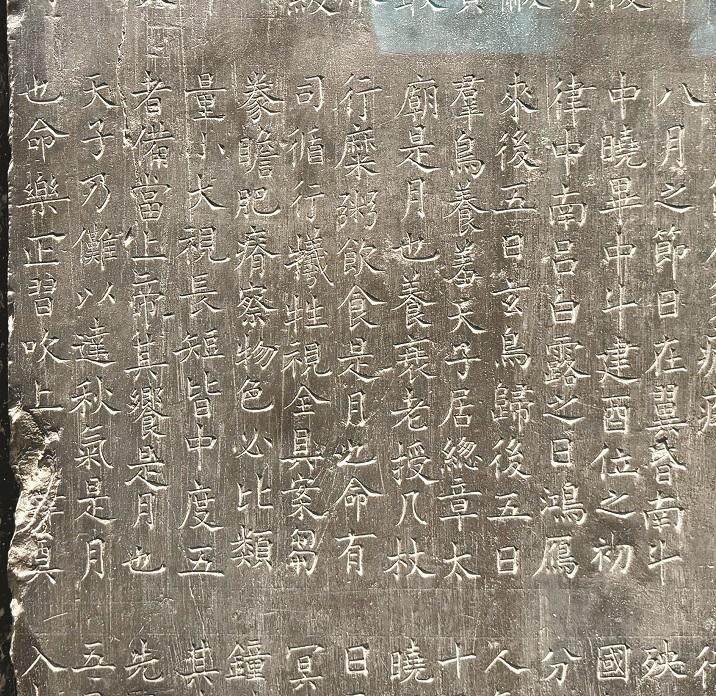 八月之節日在翼昏南斗
中曉畢中斗建酉位之初
律中南呂白露之日鴻鴈
來後五日玄鳥歸後五日
羣鳥養羞天子居總章太
廟是月也養衰老授几杖
行糜粥飲食是月也命有
司循行犧牲視全具案芻
豢瞻肥瘠察物色必比類
量小大視長短皆中度五
者備當上帝其饗是月也
天子乃儺以達秋氣是月
也命樂正習吹上奠
行
殃
國
分
人
十
曉
日
冥
鐘
其
先
五
入